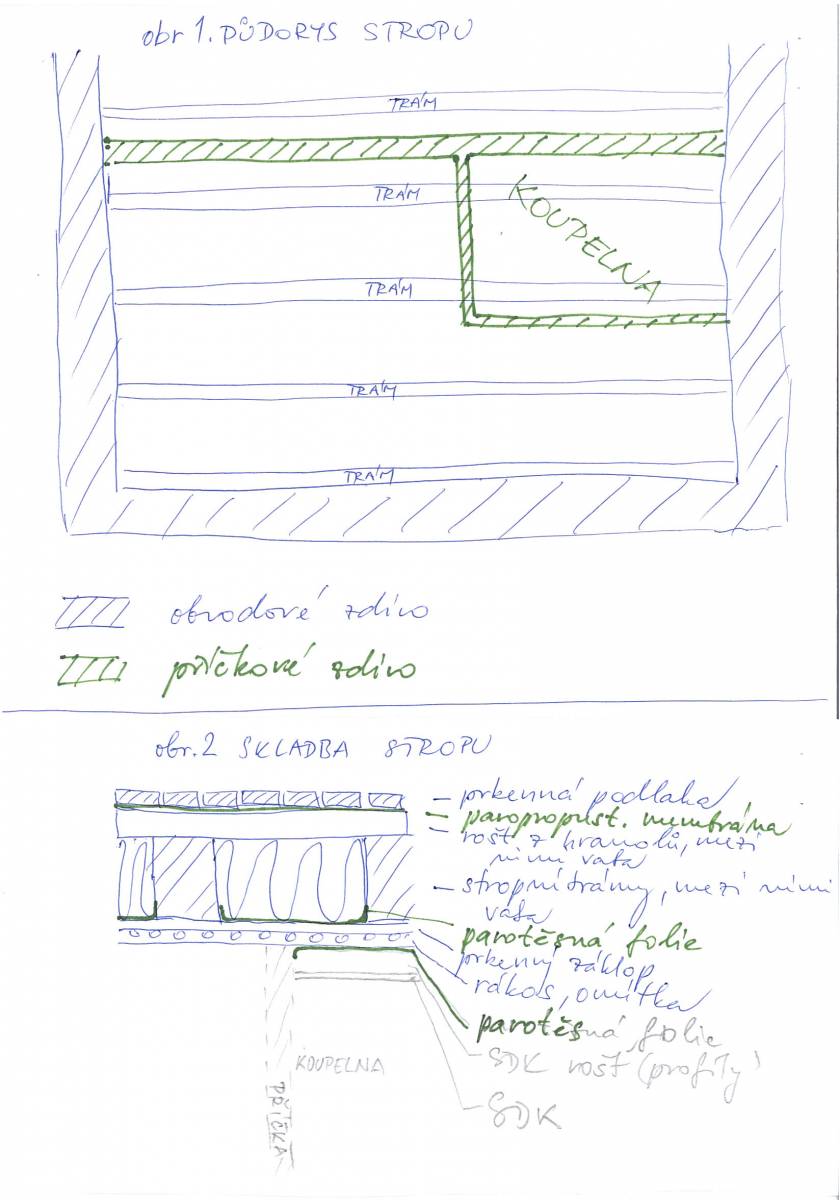 obr 1. PŮDORYS STROPU
TRÁM
TRÁM
KOUPELNA
TRÁM
TRÁM
TRÁM
obvodové zdivo
příčkové zdivo
obr. 2 SKLADBA STROPU
– prkenná podlaha
– paropropust. membrána
– rošt z hranolů, mezi
nimi vata
– stropní trámy, mezi nimi
vata
parotěsná folie
prkenný záklop
rákos, omítka
parotěsná folie
– SDK rošt (profily)
– SDK
KOUPELNA
PŘÍČKA